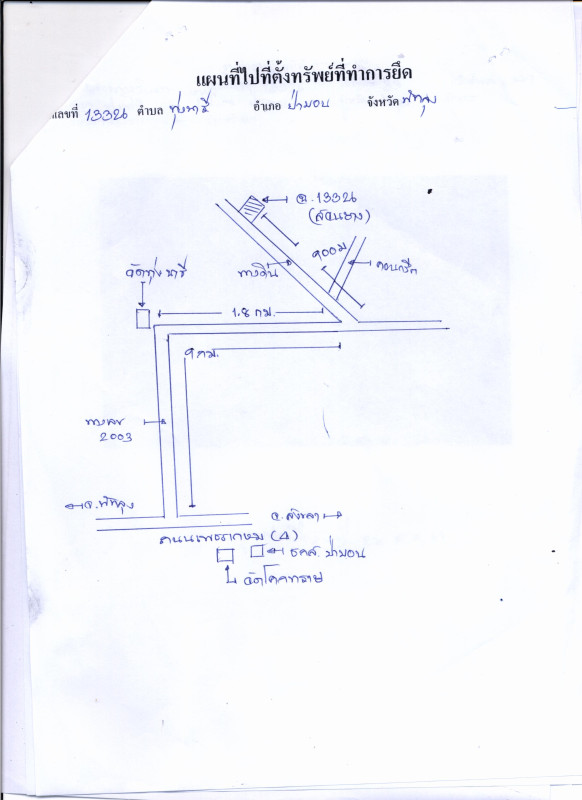 แผนที่ไปที่ตั้งทรัพย์ที่ทำการยึด
เลขที่ 13326 ตำบล ทุ่งนารี อำเภอ ป่าบอน จังหวัด พัทลุง
ฉ.13326
(สวนยาง)
900 ม
คอนกรีต
ทางดิน
วัดทุ่งนารี
1.8 กม.
9 กม.
ทางเลข
2003
จ.พัทลุง
จ.สงขลา
ถนนเพชรเกษม (4)
ธกส. ป่าบอน
วัดโคกทราย